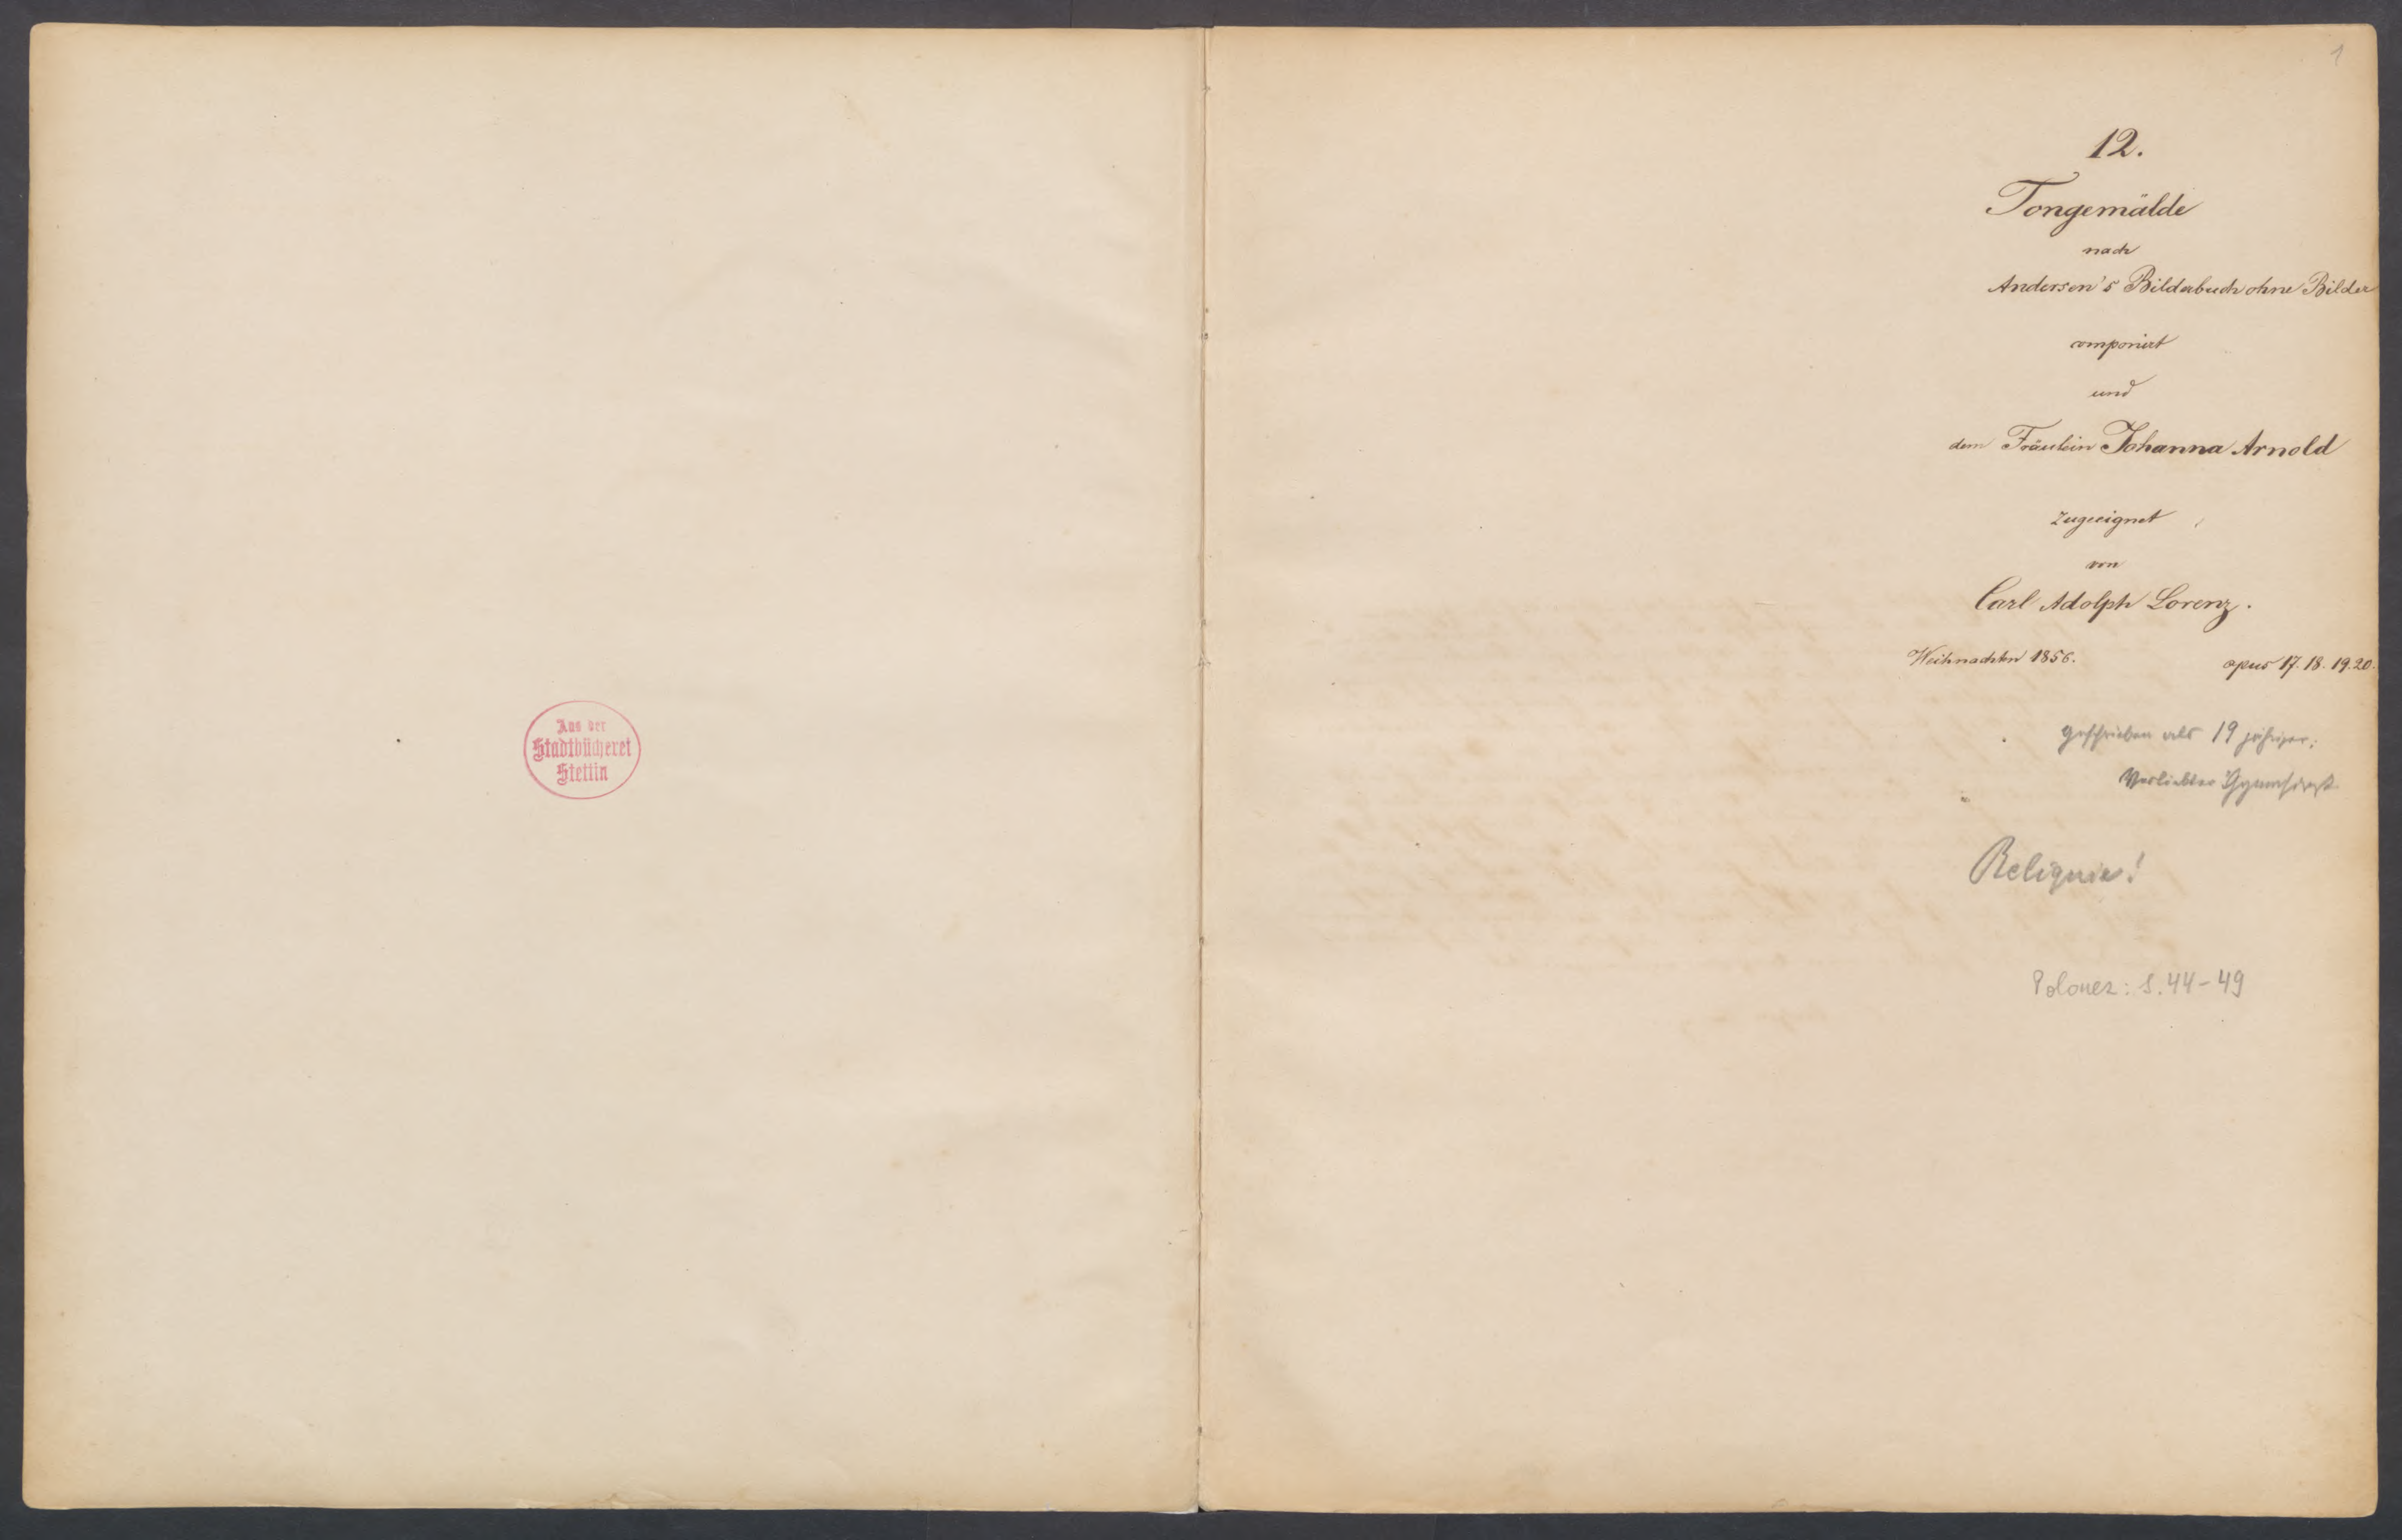 Aus der
Stadtbücherei
Stettin
1
12.
Tongemälde
nach
Andersen's Bilderbuch ohne Bilder
componirt
und
dem Fräulein Johanna Arnold
zugeeignet
von
Carl Adolph Lorenz.
Weihnachten 1856. opus 17. 18. 19. 20.
geschrieben als 19 jähriger,
verliebter Gymnasiast
Reliquie!
Polonez: S. 44-49